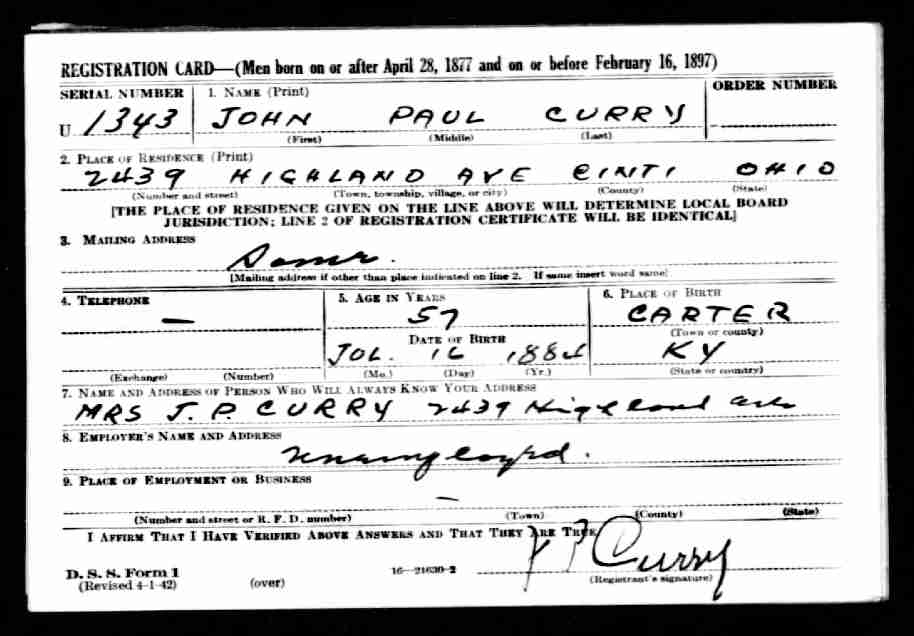 REGISTRATION CARD—(Men born on or after April 28, 1877 and on or before February 16, 1897)
SERIAL NUMBER 1. NAME (Print) ORDER NUMBER
U 1343 JOHN PAUL CURRY
(First) (Middle) (Last)
2. PLACE OF RESIDENCE (Print)
2439 HIGHLAND AVE CINTI OHIO
(Number and street) (Town, township, village, or city) (County) (State)
[THE PLACE OF RESIDENCE GIVEN ON THE LINE ABOVE WILL DETERMINE LOCAL BOARD
JURISDICTION; LINE 2 OF REGISTRATION CERTIFICATE WILL BE IDENTICAL]
3. MAILING ADDRESS
Same.
[Mailing address if other than place indicated on line 2. If same insert word same]
4. TELEPHONE 5. AGE IN YEARS 6. PLACE OF BIRTH
— 57 CARTER
DATE OF BIRTH (Town or county)
JUL. 16 1884 KY
(Exchange) (Number) (Mo.) (Day) (Yr.) (State or country)
7. NAME AND ADDRESS OF PERSON WHO WILL ALWAYS KNOW YOUR ADDRESS
MRS J. P. CURRY 2439 Highland
8. EMPLOYER'S NAME AND ADDRESS
unemployed.
9. PLACE OF EMPLOYMENT OR BUSINESS
—
(Number and street or R. F. D. number) (Town) (County) (State)
I AFFIRM THAT I HAVE VERIFIED ABOVE ANSWERS AND THAT THEY ARE TRUE
J P Curry
D. S. S. Form 1 16—21630-2 (Registrant's signature)
(Revised 4-1-42) (over)